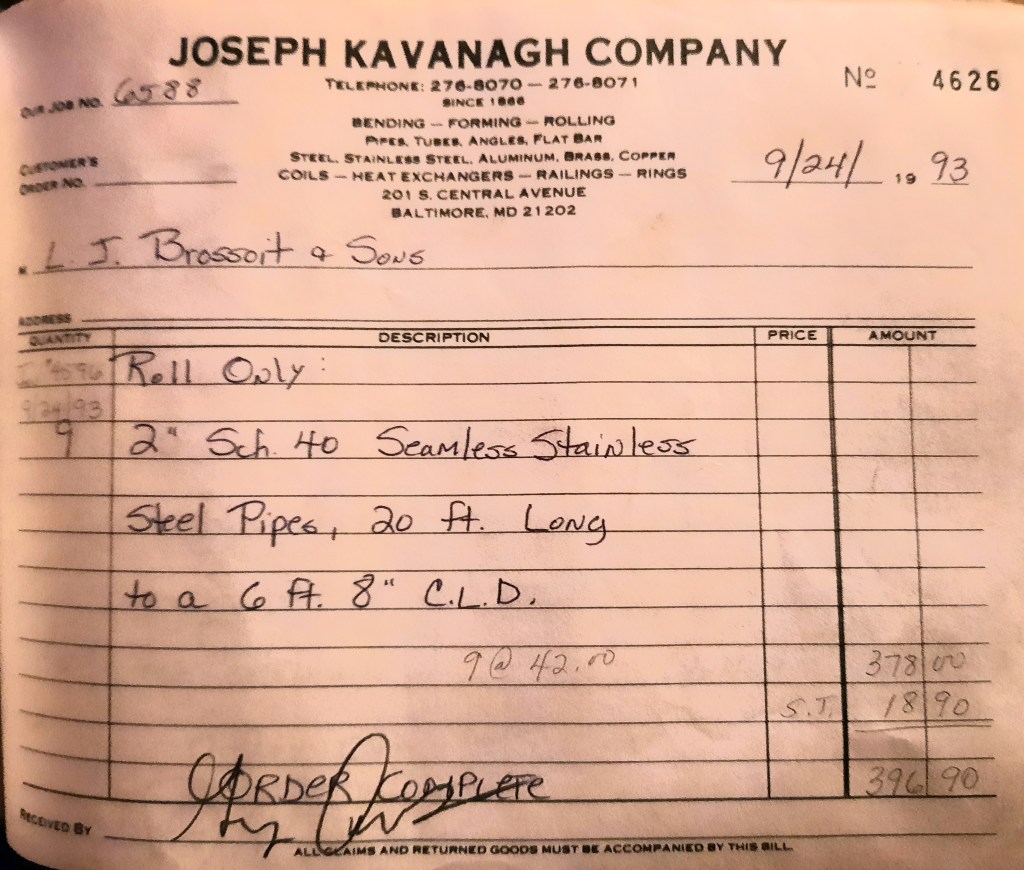 JOSEPH KAVANAGH COMPANY
TELEPHONE: 276-8070 — 276-8071
Nº 4626
SINCE 1866
OUR JOB NO. 6588
BENDING — FORMING — ROLLING
PIPES, TUBES, ANGLES, FLAT BAR
STEEL, STAINLESS STEEL, ALUMINUM, BRASS, COPPER
CUSTOMER'S
ORDER NO.
COILS — HEAT EXCHANGERS — RAILINGS — RINGS
9/24/ 19 93
201 S. CENTRAL AVENUE
BALTIMORE, MD 21202
M L. J. Brossoit & Sons
ADDRESS
QUANTITY DESCRIPTION PRICE AMOUNT
4596 Roll Only:
9/24/93
9 2" Sch. 40 Seamless Stainless
Steel Pipes, 20 ft. Long
to a 6 ft. 8" C.L.D.
9 @ 42.00 378 00
S.T. 18 90
ORDER COMPLETE 396 90
RECEIVED BY
ALL CLAIMS AND RETURNED GOODS MUST BE ACCOMPANIED BY THIS BILL.